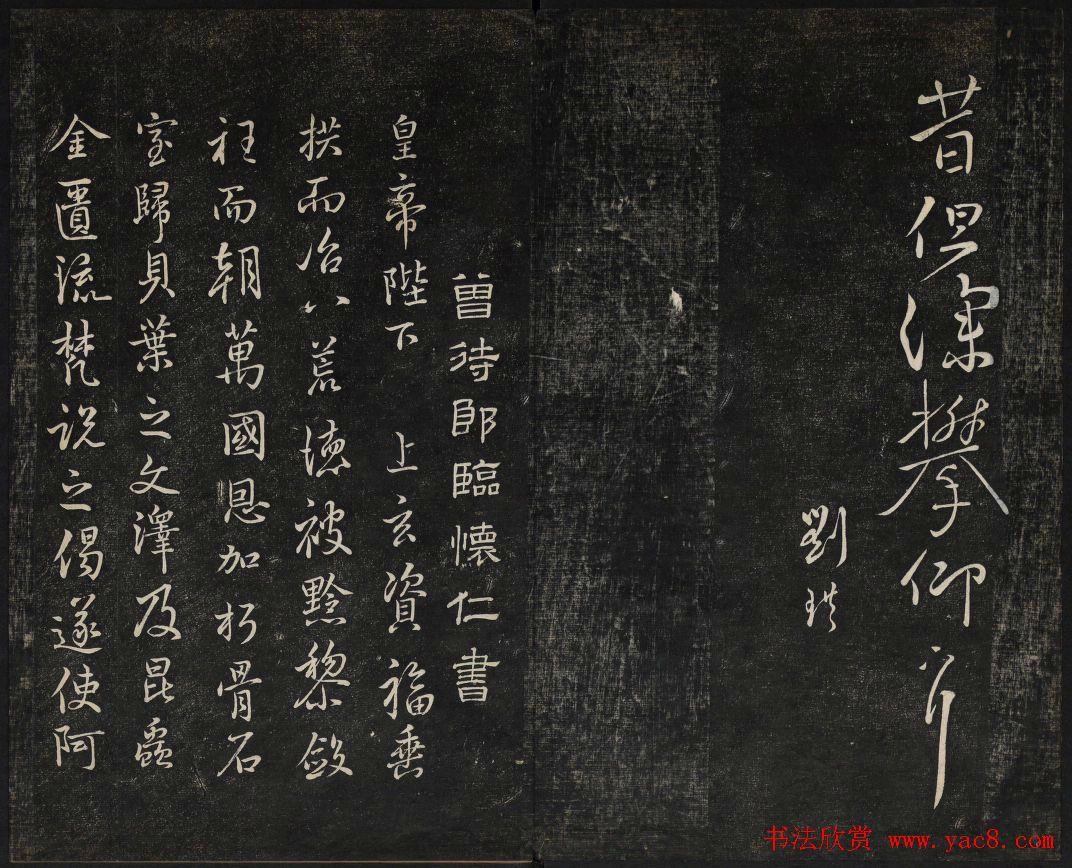 昔但深攀仰
劉珙
曾侍郎臨懷仁書
皇帝陛下上玄資福垂
拱而治八荒德被黔黎斂
衽而朝萬國恩加朽骨石
室歸貝葉之文澤及昆蟲
金匱流梵說之偈遂使阿
书法欣赏 www.yac8.com